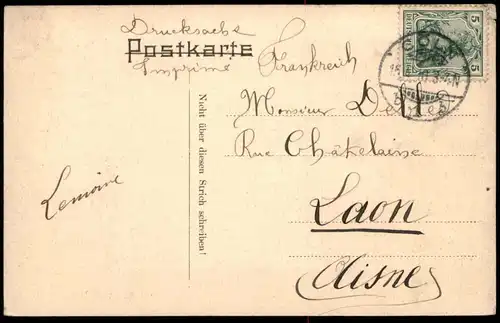 Drucksache
Postkarte
Imprimé Frankreich
Monsieur
Rue Châtelaine
Laon
(Aisne)
Lemoine
Nicht über diesen Strich schreiben!
5
5